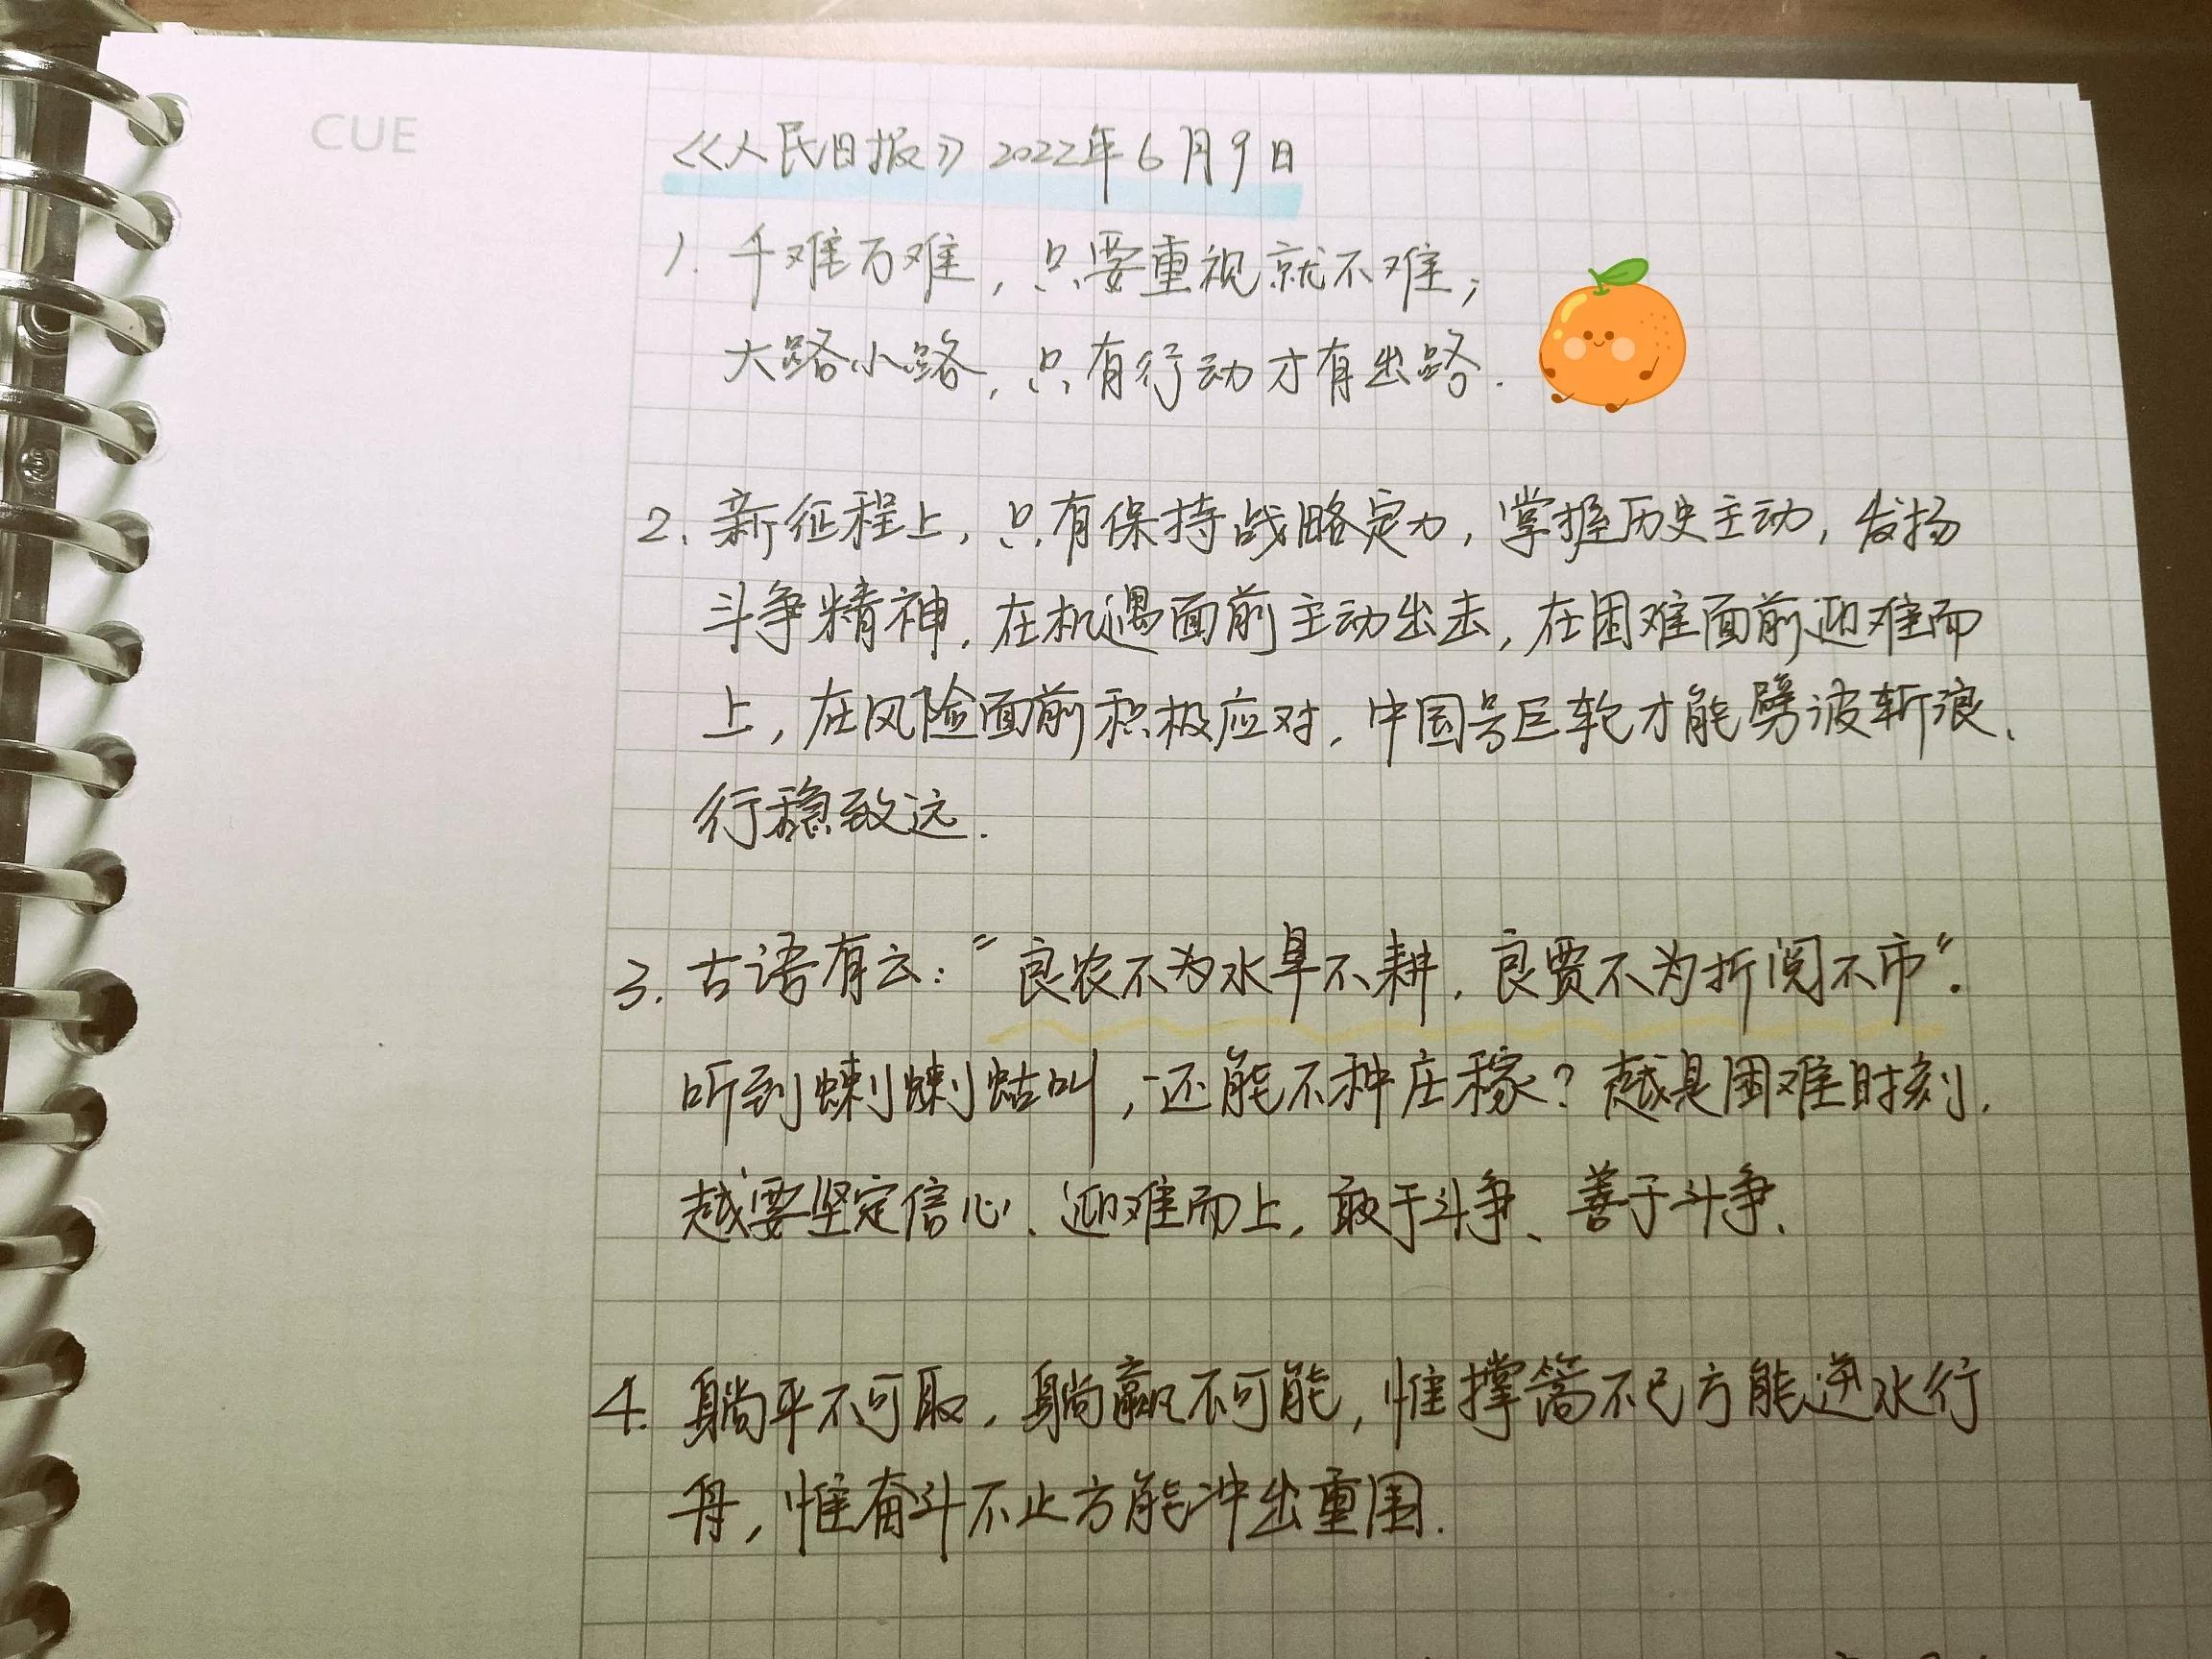 CUE
《人民日报》2022年6月9日
1. 千难万难，只要重视就不难；
大路小路，只有行动才有出路.
2. 新征程上，只有保持战略定力，掌握历史主动，发扬
斗争精神，在机遇面前主动出击，在困难面前迎难而
上，在风险面前积极应对，中国号巨轮才能劈波斩浪、
行稳致远.
3. 古语有云：“良农不为水旱不耕，良贾不为折阅不市”.
听到蝲蝲蛄叫，还能不种庄稼？越是困难时刻，
越要坚定信心、迎难而上，敢于斗争、善于斗争、
4. 躺平不可取，躺赢不可能，惟撑篙不已方能逆水行
舟，惟奋斗不止方能冲出重围.